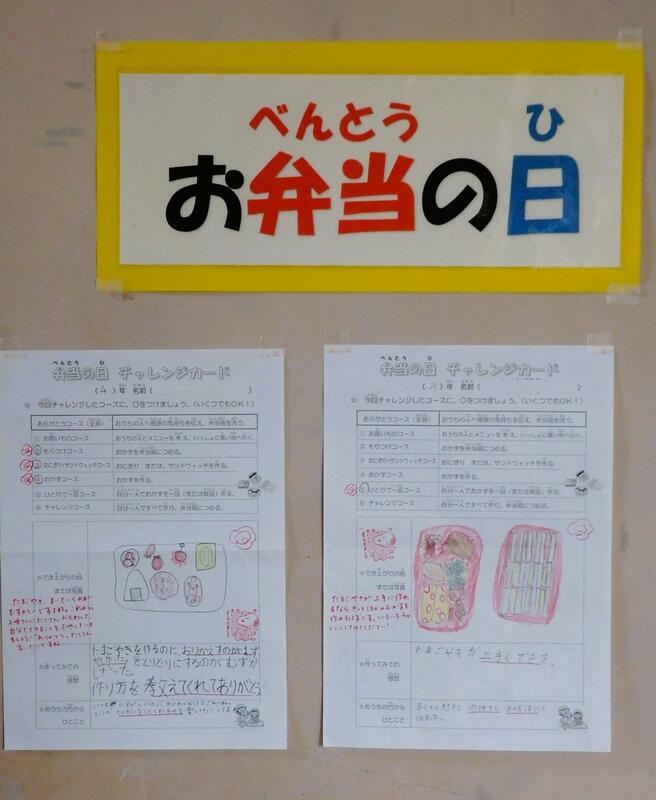 べんとう ひ
お弁当の日
べんとう ひ
弁当の日 チャレンジカード
( 4 )年 名前 (
☆ 今回チャレンジしたコースに、〇をつけましょう。(いくつでもOK!)
ありがとうコース(全員) おうちの人へ感謝の気持ちを伝え、弁当箱を洗う。
① お買いものコース おうちの人とメニューを考え、いっしょに買い物へ行く。
② もりつけコース おかずを弁当箱につめる。
③ おにぎり・サンドウィッチコース おにぎり または、サンドウィッチを作る。
④ おかずコース おかずを作る。
⑤ ひとりで一品コース 自分一人でおかずを一品(または数品)作る。
⑥ チャレンジコース 自分一人ですべて作り、弁当箱につめる。
☆でき上がりの絵
または写真
☆作ってみての
感想
たまごやきを作るのに、おりかえすのがむず
かしかった
作り方を教えてくれてありがとう
☆おうちの方から
ひとこと
べんとう ひ
弁当の日 チャレンジカード
年 名前 (
☆ 今回チャレンジしたコースに、〇をつけましょう。(いくつでもOK!)
ありがとうコース(全員) おうちの人へ感謝の気持ちを伝え、弁当箱を洗う。
① お買いものコース おうちの人とメニューを考え、いっしょに買い物へ行く。
② もりつけコース おかずを弁当箱につめる。
③ おにぎり・サンドウィッチコース おにぎり または、サンドウィッチを作る。
④ おかずコース おかずを作る。
⑤ ひとりで一品コース 自分一人でおかずを一品(または数品)作る。
⑥ チャレンジコース 自分一人ですべて作り、弁当箱につめる。
☆でき上がりの絵
または写真
☆作ってみての
感想
たまごやきが上手くできた。
☆おうちの方から
ひとこと